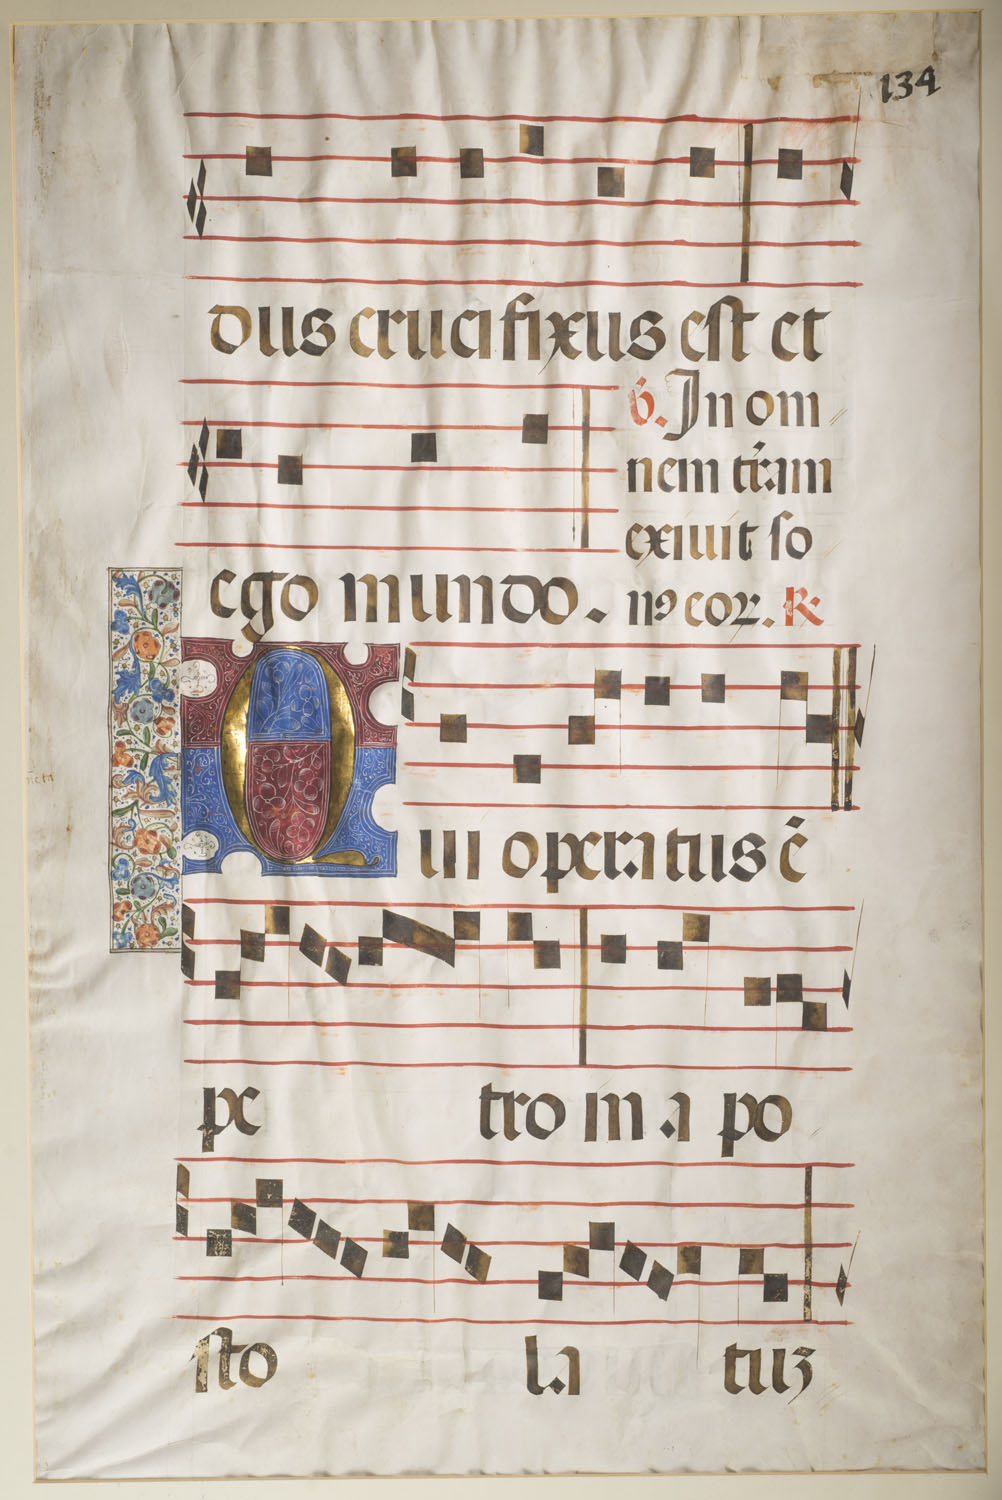 134
dus crucifixus est et
ego mundo.
℣. In om
nem tr̃am
exiuit so
nꝯ eoꝝ. ℟.
Qui operatus ẽ
pe tro in a po
sto la tuz